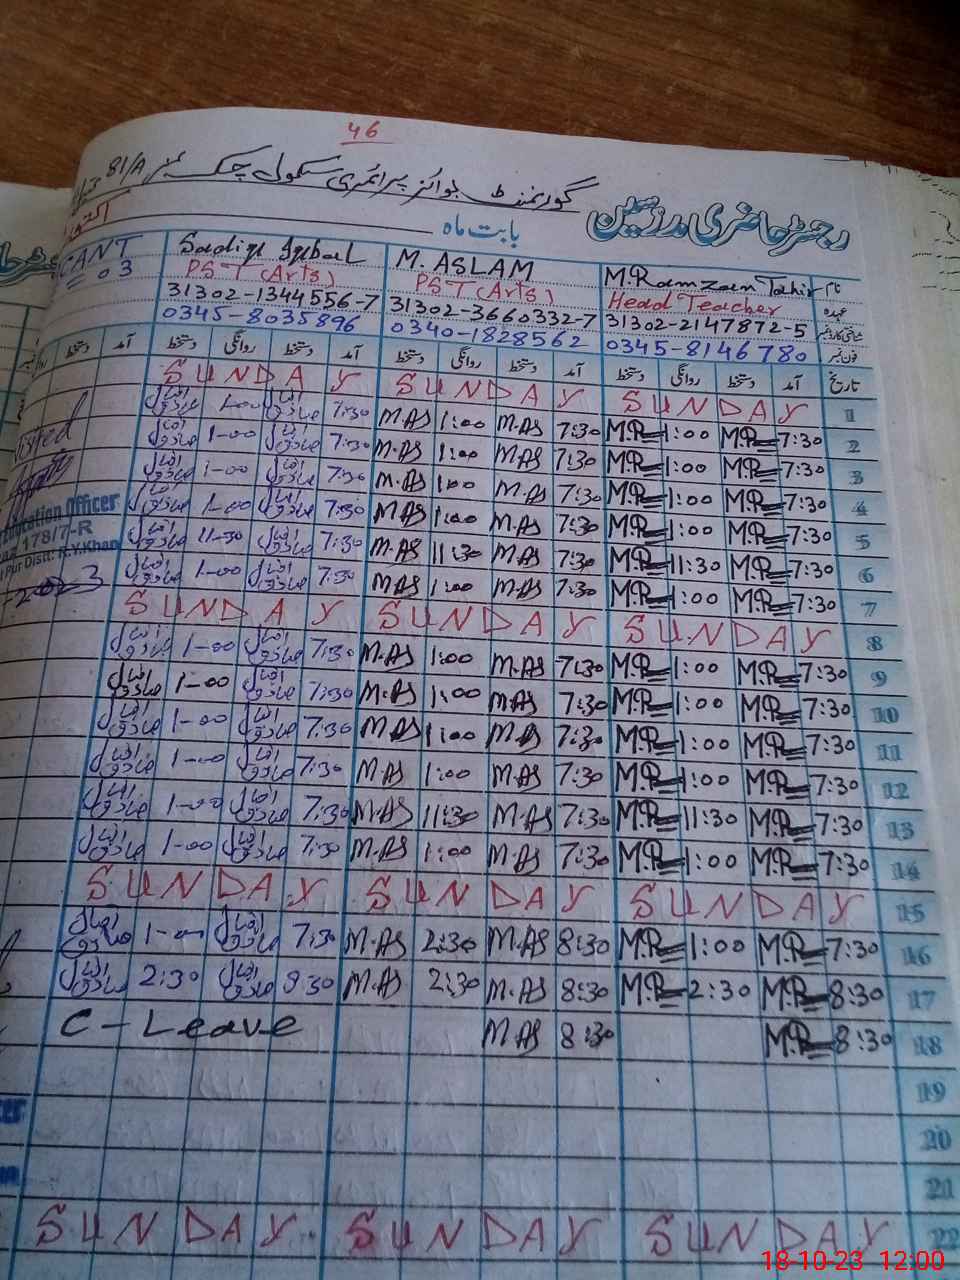 46
گورنمنٹ بوائز پرائمری سکول چک نمبر 81/A
رجسٹر حاضری مدرسین
بابت ماہ اکتوبر
CANT 03
Sadiq Iqbal M. ASLAM M. Ramzan Tahir نام
PST (Arts) PST (Arts) Head Teacher عہدہ
31302-1344556-7 31302-3660332-7 31302-2147872-5 شناختی کارڈ نمبر
0345-8035896 0340-1828562 0345-8146780 فون نمبر
دستخط آمد دستخط روانگی دستخط آمد دستخط روانگی دستخط آمد دستخط روانگی دستخط آمد تاریخ
SUNDAY SUNDAY SUNDAY 1
1-00 7:30 M.AS 1:00 M.AS 7:30 M.R 1:00 M.R 7:30 2
1-00 7:30 M.AS 1:00 M.AS 7:30 M.R 1:00 M.R 7:30 3
1-00 7:30 M.AS 1:00 M.AS 7:30 M.R 1:00 M.R 7:30 4
1-00 7:30 M.AS 1:00 M.AS 7:30 M.R 1:00 M.R 7:30 5
11-30 7:30 M.AS 11:30 M.AS 7:30 M.R 11:30 M.R 7:30 6
1-00 7:30 M.AS 1:00 M.AS 7:30 M.R 1:00 M.R 7:30 7
SUNDAY SUNDAY SUNDAY 8
1-00 7:30 M.AS 1:00 M.AS 7:30 M.R 1:00 M.R 7:30 9
1-00 7:30 M.AS 1:00 M.AS 7:30 M.R 1:00 M.R 7:30 10
1-00 7:30 M.AS 1:00 M.AS 7:30 M.R 1:00 M.R 7:30 11
1-00 7:30 M.AS 1:00 M.AS 7:30 M.R 1:00 M.R 7:30 12
1-00 7:30 M.AS 11:30 M.AS 7:30 M.R 11:30 M.R 7:30 13
1-00 7:30 M.AS 1:00 M.AS 7:30 M.R 1:00 M.R 7:30 14
SUNDAY SUNDAY SUNDAY 15
1-00 7:30 M.AS 2:30 M.AS 8:30 M.R 1:00 M.R 7:30 16
2:30 M.AS 2:30 M.AS 8:30 M.R 2:30 M.R 8:30 17
C-Leave M.AS 8:30 M.R 8:30 18
19
20
21
SUNDAY SUNDAY SUNDAY 22
Visited
Education Officer
178/7-R
Pur Distt: R.Y.Khan
18-10-23 12:00